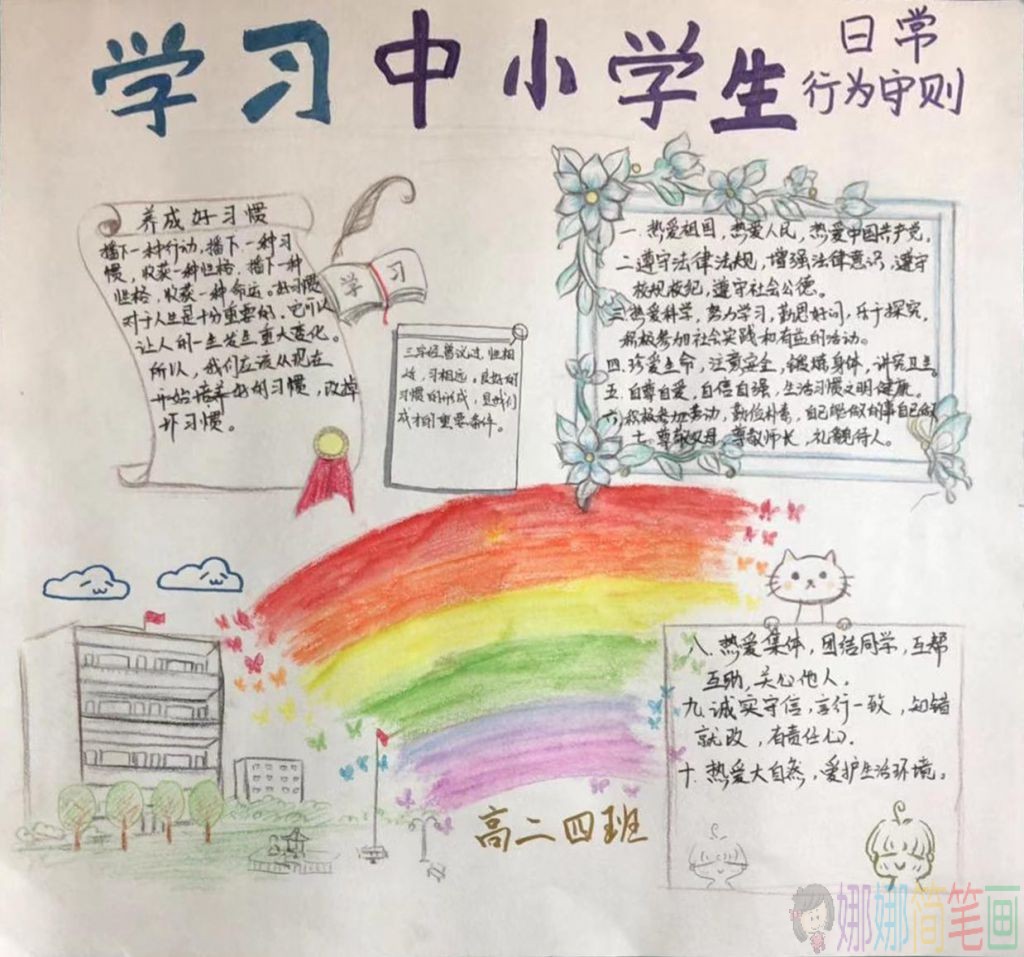 学习中小学生
日常
行为守则
养成好习惯
播下一种行动,播下一种习
惯,收获一种性格,播下一种
性格,收获一种命运。好习惯
对于人生是十分重要的,它可以
让人的一生发生重大变化。
所以,我们应该从现在
开始培养好的习惯,改掉
坏习惯。
学习
三字经曾说过,性相
近,习相远。良好的
习惯的形成,是我们
成才的重要条件。
一.热爱祖国,热爱人民,热爱中国共产党。
二.遵守法律法规,增强法律意识,遵守
校规校纪,遵守社会公德。
三.热爱科学,努力学习,勤思好问,乐于探究,
积极参加社会实践和有益的活动。
四.珍爱生命,注意安全,锻炼身体,讲究卫生。
五.自尊自爱,自信自强,生活习惯文明健康。
六,积极参加劳动,勤俭朴素,自己能做的事自己做
七.尊敬父母,尊敬师长,礼貌待人。
八.热爱集体,团结同学,互帮
互助,关心他人.
九.诚实守信,言行一致,知错
就改,有责任心.
十.热爱大自然,爱护生活环境。
高二四班
娜娜简笔画